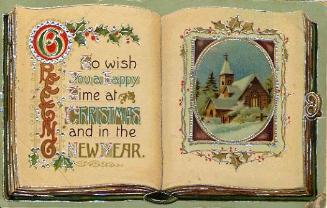 GREETING
To wish
You a Happy
Time at
CHRISTMAS
and in the
NEW YEAR.